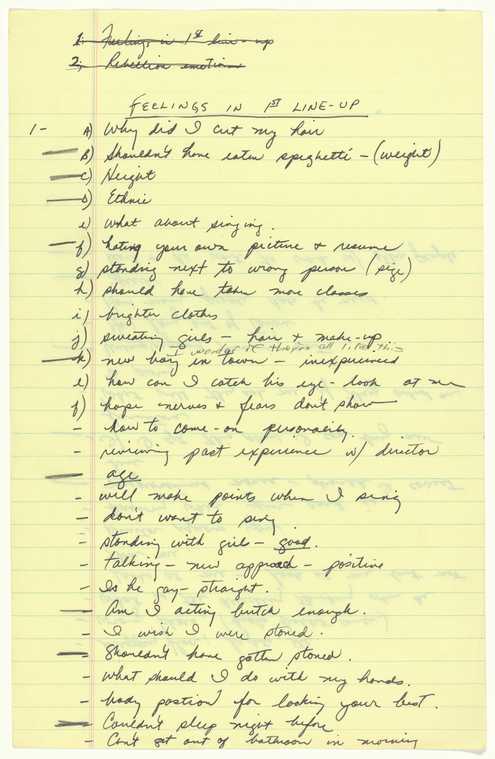 1. Feelings in 1st line-up
2. Rejection emotions
FEELINGS IN 1ST LINE-UP
1- A) Why did I cut my hair
B) Shouldn't have eaten speghetti - (weight)
C) Height
D) Ethnic
e) what about singing.
f) hating your own picture & resume
g) standing next to wrong person (size)
h) should have taken more classes
i) brighter clothes
j) sweating girls - hair & make-up
I wonder if they're all like this
k) new boy in town - inexperienced
l) how can I catch his eye - look at me
f) hope nerves & fears don't show
- how to come-on personality.
- reviewing past experience w/ director
- age
- will make points when I sing
- don't want to sing
- standing with girl - good.
- talking - new approach - positive
- Is he gay - straight.
- Am I acting butch enough.
- I wish I were stoned.
- Shouldn't have gotten stoned.
- What should I do with my hands.
- body postion for looking your best.
- Couldn't sleep night before
- Can't get out of bathroom in morning